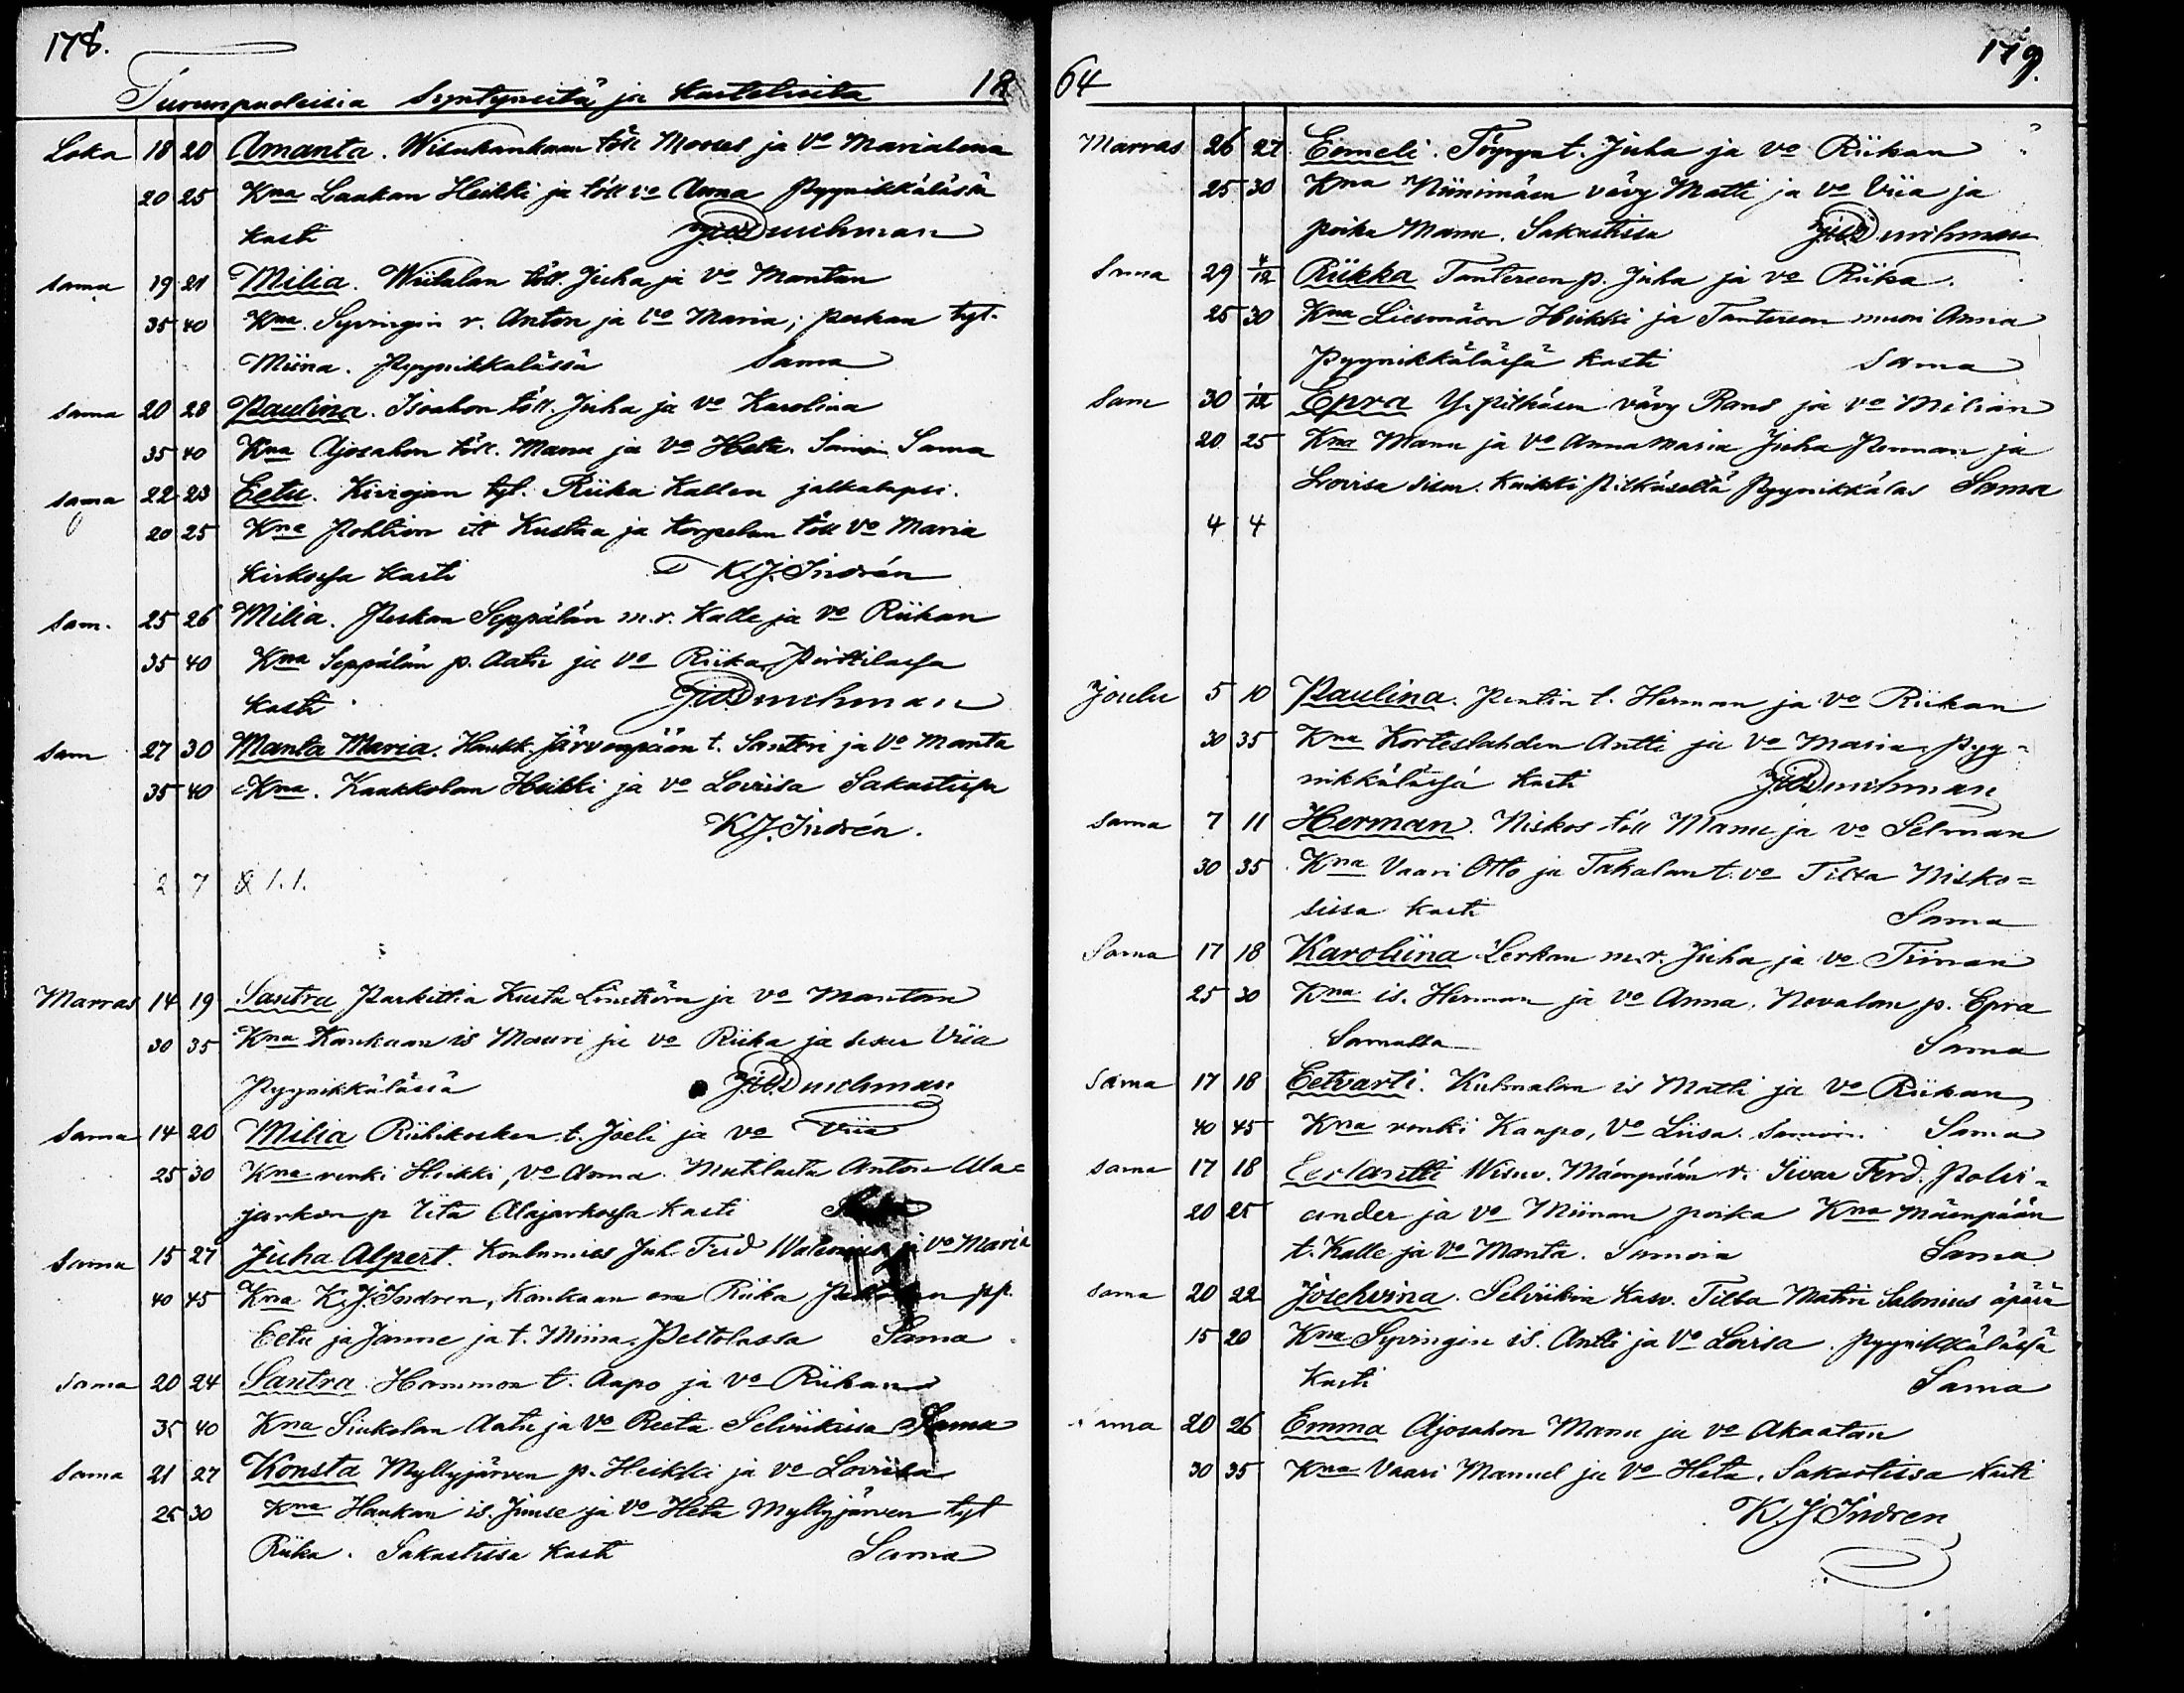 178.
Turunpuoleisia Syntyneitä ja Kastetuita 18
Loka 18 20 Amanta. Wisukankaan töll Moses ja vo Marialena
20 25 Kna Laukan Heikki ja töll vo Anna Pyynikkälässä
kasti
sama 19 21 Milia. Wiitalan töll. Juha ja vo Mantan
35 40 Kna. Syvingin r. Anton ja vo Maria; Peskan tyt.
Miina. Pyynikkälässä Sama
sama 20 28 Paulina. Isoahon töll. Juha ja vo Karolina
35 40 Kna Ajosahon töll. Manu ja vo Heta. Samoin Sama
sama 22 23 Eetu. Kiviojan tyt. Riika Kallen jalkalapsi.
20 25 Kna Pohtion it Kustaa ja Korpelan töll vo Maria
Kirkossa kasti K.J. Indrén
Sam. 25 26 Milia. Peskan Seppälän m.r. Kalle ja vo Riikan
35 40 Kna Seppälän p. Aatu ja vo Riika, Perttilässa
kasti
Sam 27 30 Manta Maria. Haukk. Järvenpään t. Santeri ja vo Manta
35 40 Kna. Kaakkolan Heikki ja vo Loviisa Sakastissa
K.J. Indrén.
2 7 & 1. 1.
Marras 14 19 Santra Parkittia Kusta Linström ja vo Mantan
30 35 Kna Kankaan is Mauri ja vo Riika ja sisar Viia
Pyynikkälässä
Sama 14 20 Milia Riihikosken t. Joeli ja vo Viia
25 30 Kna renki Heikki, vo Anna. Mutilasta Anton Ala=
jarkon p Iita Alajarkossa kasti
Sama 15 27 Juha Alpert. Koulumies Juh. Ferd Walenius ja vo Maria
40 45 Kna K.J. Indren, Kankaan em Riika pp.
Eetu ja Janne ja t. Miina. Peltolassa Sama
Sama 20 24 Santra Hammon t. Aapo ja vo Riikan
35 40 Kna Siukolan Aatu ja vo Reeta Selviikissa Sama
Sama 21 27 Konsta Myllyjärven p. Heikki ja vo Loviisa
25 30 Kna Haukan is. Juuse ja vo Heta Myllyjärven tyt
Riika. Sakastissa kasti Sama
179.
64
Marras 26 27 Eemeli. Töyryn t. Juha ja vo Riikan
25 30 Kna Niinimäen vävy Matti ja vo Viia ja
poika Manu. Sakastissa
Sama 29 4/12 Riikka Tantereen p. Juha ja vo Riika.
25 30 Kna Liesmäen Heikki ja Tantereen muori Anna
Pyynikkälässä kasti Sama
Sam 30 1/12 Epra Y. pitkäsen vävy Rans ja vo Milian
20 25 Kna Manu ja vo Annamaria Juha Penman ja
Lovisa sisar. Kaikki Pitkäseltä Pyynikkäläs Sama
4 4
Joulu 5 10 Paulina. Pentin t. Herman ja vo Riikan
30 35 Kna Korteslahden Antti ja vo Maria, Pyy=
nikkälässä kasti
Sama 7 11 Herman. Niskos töll Manu ja vo Selman
30 35 Kna Vaari Otto ja Takalan t. vo Tilta Nisko=
sissa kasti Sama
Sama 17 18 Karoliina Lerkan m.r. Juha ja vo Tiinan
25 30 Kna is. Herman ja vo Anna, Nevalan p. Epra
Samalla Sama
Sama 17 18 Eetvarti. Kulmalan is Matti ja vo Riikan
40 45 Kna renki Kaapo, vo Liisa. Samoin. Sama
Sama 17 18 Eerlantti Wisuv. Mäenpään r. Iivar Ferd. Polvi=
20 25 ander ja vo Miinan poika Kna Mäenpään
t. Kalle ja vo Manta. Samoin Sama
Sama 20 22 Josehvina. Selviikin Kasv. Tilta Matin Salonius äpärä
15 20 Kna Syvingin is. Antti ja vo Loviisa. Pyynikkälässä
kasti Sama
Sama 20 26 Emma Ajosahon Manu ja vo Akaatan
30 35 Kna Vaari Manuel ja vo Heta. Sakastissa kasti
K.J. Indren